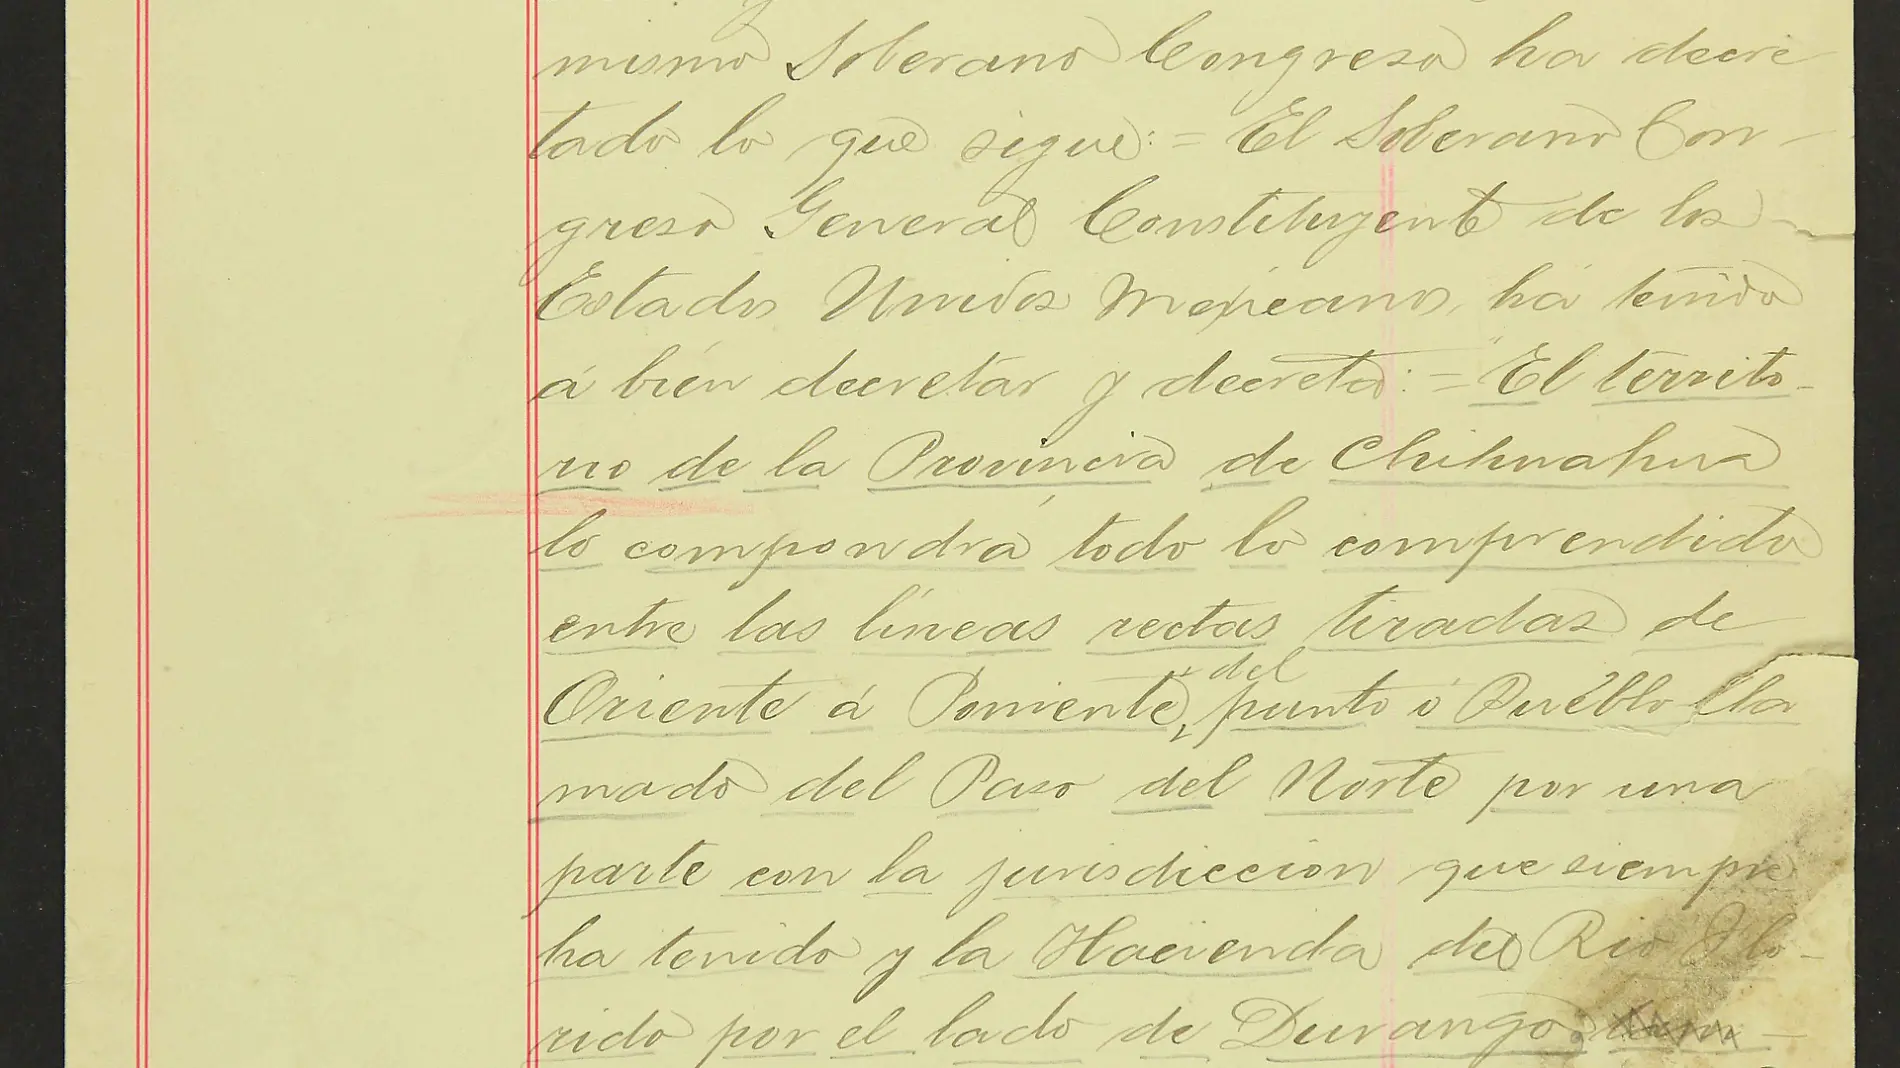 mismo Soberano Congreso ha decre
tado lo que sigue: = El Soberano Con-
greso General Constituyente de los
Estados Unidos Mexicanos, há tenido
á bién decretar y decreta: = "El territo-
rio de la Provincia de Chihuahua
lo compondrá todo lo comprendido
entre las líneas rectas tiradas de
Oriente á Poniente, del punto ó Pueblo lla
mado del Paso del Norte por una
parte con la jurisdiccion que siempre
ha tenido y la Hacienda del Rio Flo-
rido por el lado de Durango,